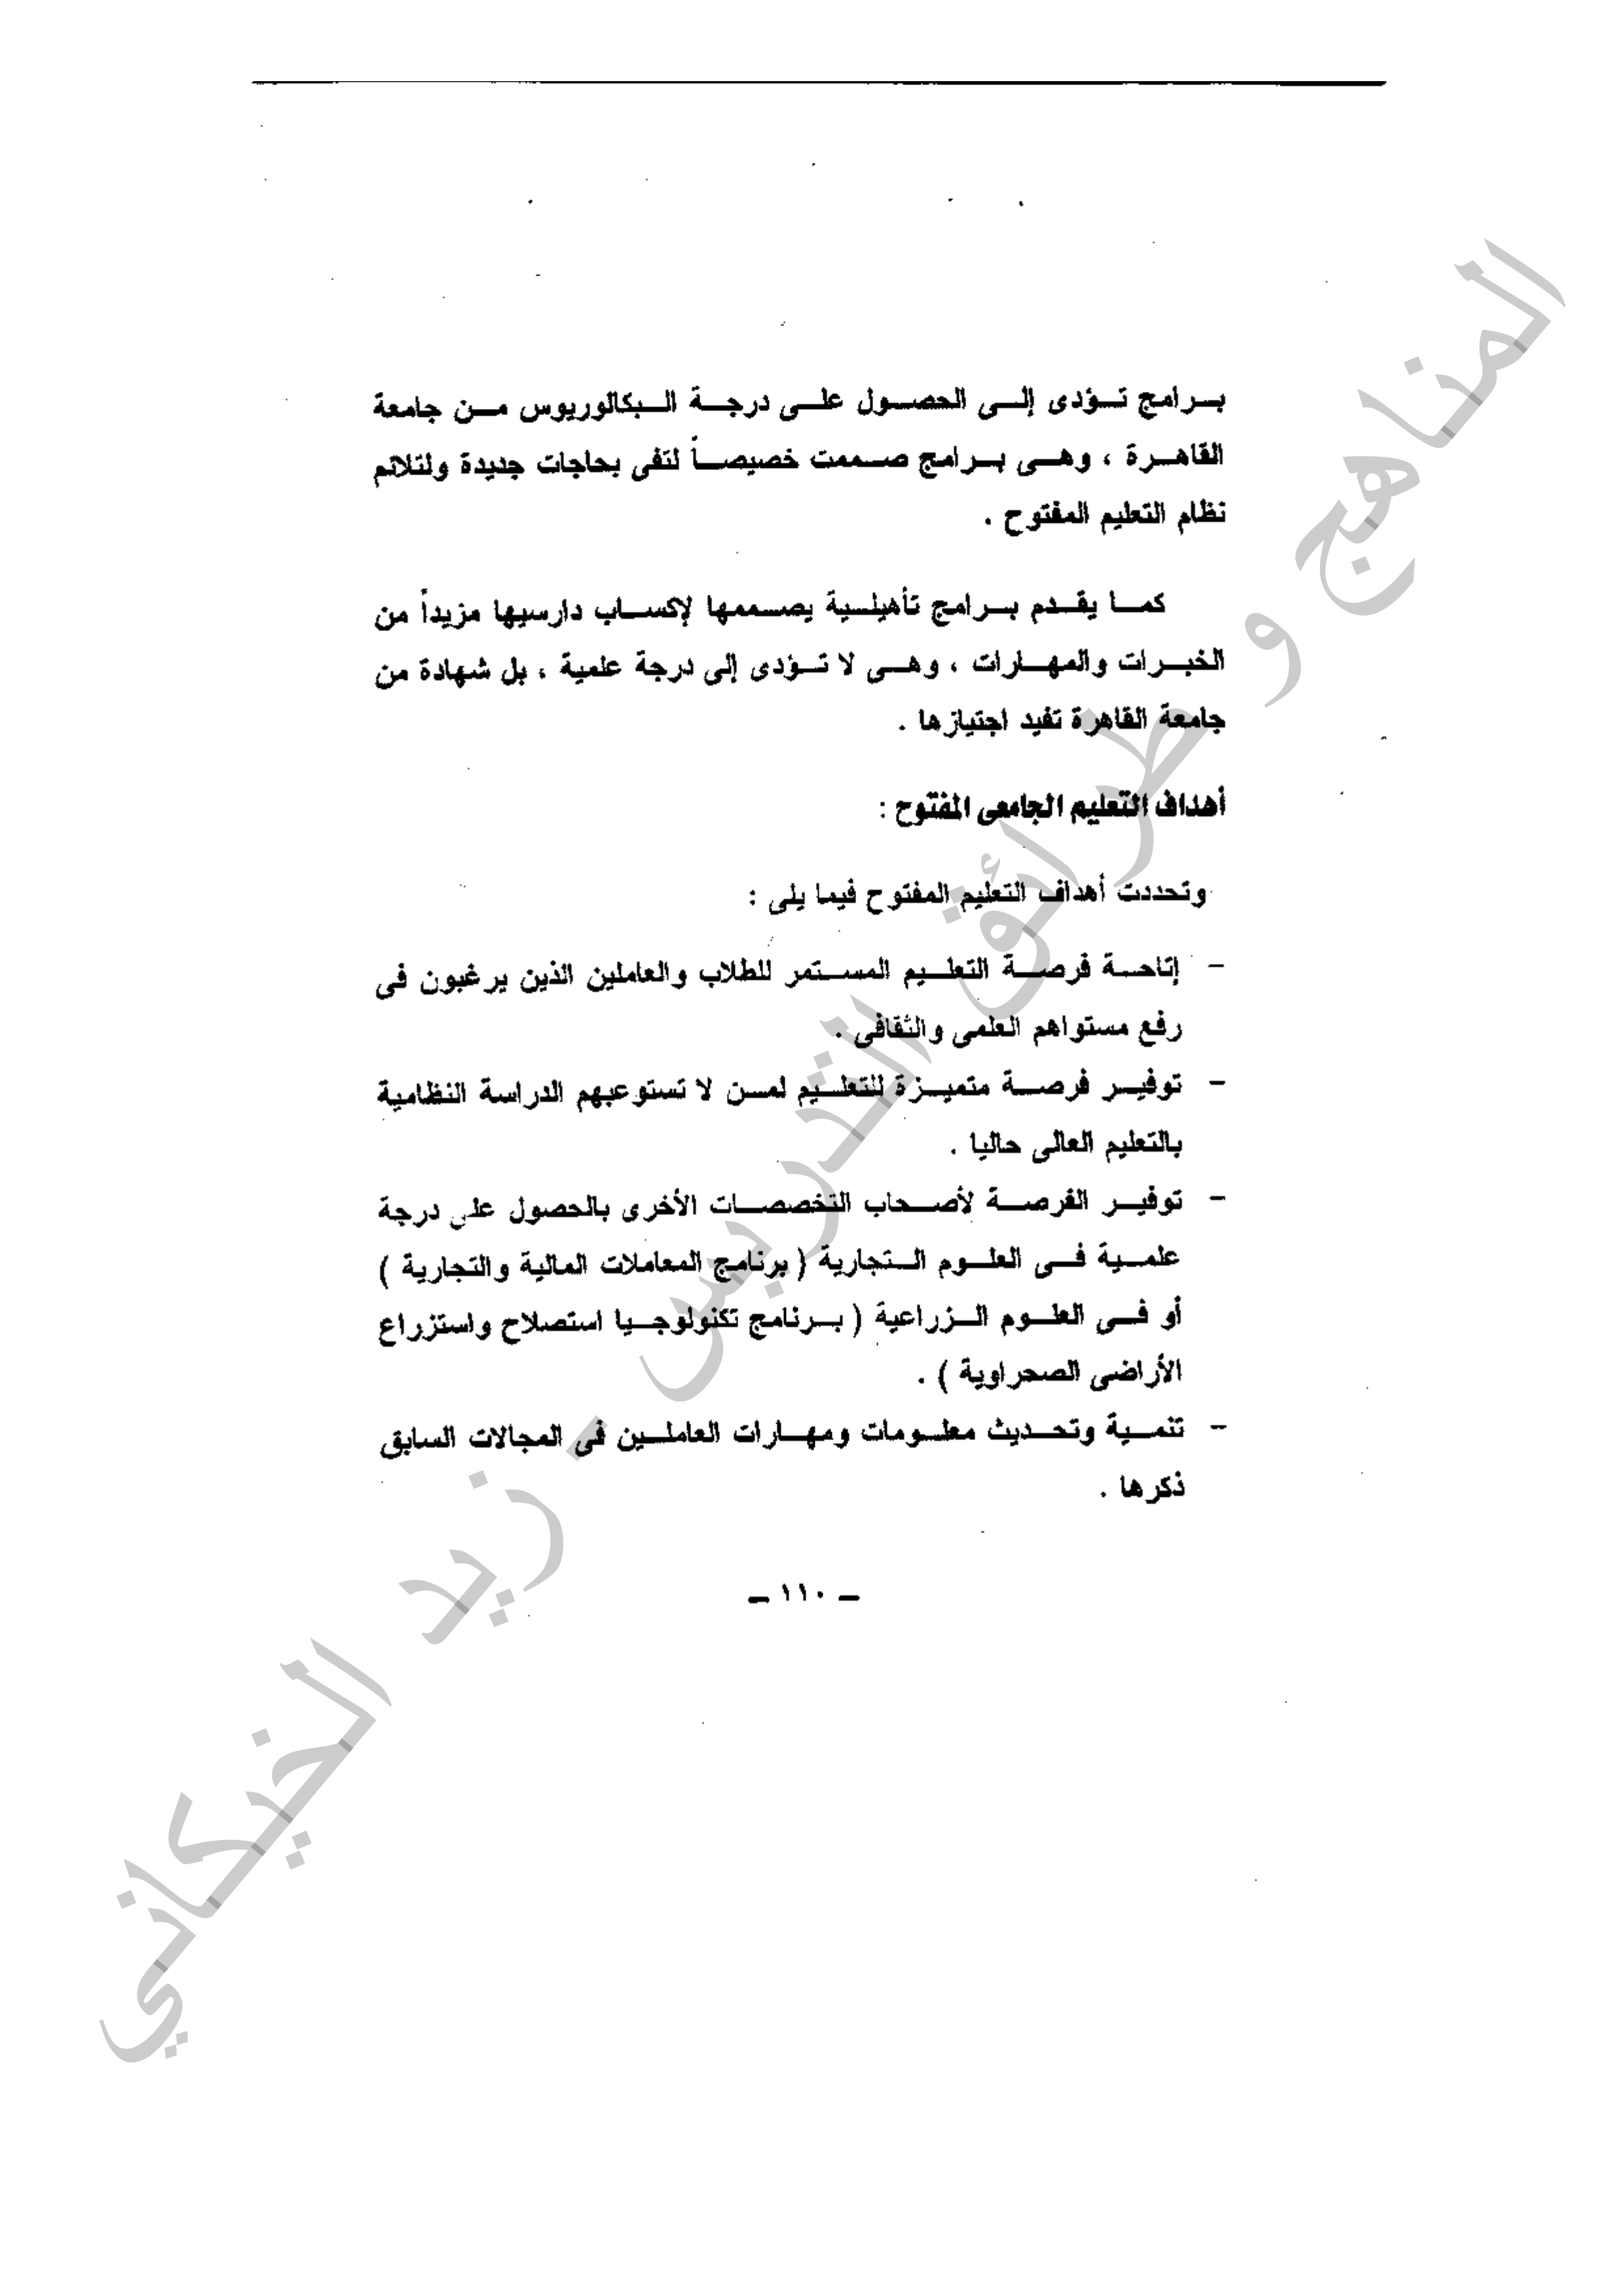 برامج تؤدى إلى الحصول على درجة البكالوريوس من جامعة
القاهرة ، وهى برامج صممت خصيصاً لتفى بحاجات جديدة ولتلائم
نظام التعليم المفتوح .
كما يقدم برامج تأهيلية يصممها لإكساب دارسيها مزيداً من
الخبرات والمهارات ، وهى لا تؤدى إلى درجة علمية ، بل شهادة من
جامعة القاهرة تفيد اجتيازها .
أهداف التعليم الجامعى المفتوح :
وتحددت أهداف التعليم المفتوح فيما يلى :
– إتاحة فرصة التعليم المستمر للطلاب والعاملين الذين يرغبون فى
رفع مستواهم العلمى والثقافى .
– توفير فرصة متميزة للتعليم لمن لا تستوعبهم الدراسة النظامية
بالتعليم العالى حاليا .
– توفير الفرصة لأصحاب التخصصات الأخرى بالحصول على درجة
علمية فى العلوم التجارية ( برنامج المعاملات المالية والتجارية )
أو فى العلوم الزراعية ( برنامج تكنولوجيا استصلاح واستزراع
الأراضى الصحراوية ) .
– تنمية وتحديث معلومات ومهارات العاملين فى المجالات السابق
ذكرها .
– ١١٠ –
المناهج و طرائق التدريس - زيد الخيكاني